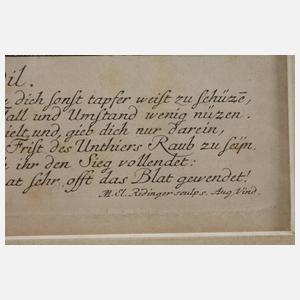 dil.
dich sonst tapfer weist zu schüzē,
Fall und Umstand wenig nüzen.
und, gieb dich nur darein,
Frist des Unthiers Raub zu seÿn.
ihr den Sieg vollendet:
at sehr offt das Blat gewendet!
M. El. Ridinger sculps. Aug. Vind.